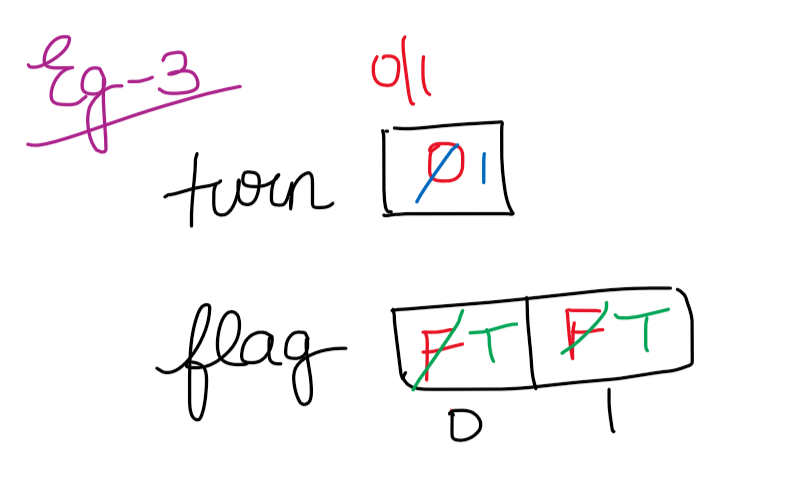 Eg-3
0/1
turn 0 1
flag F T F T
0 1